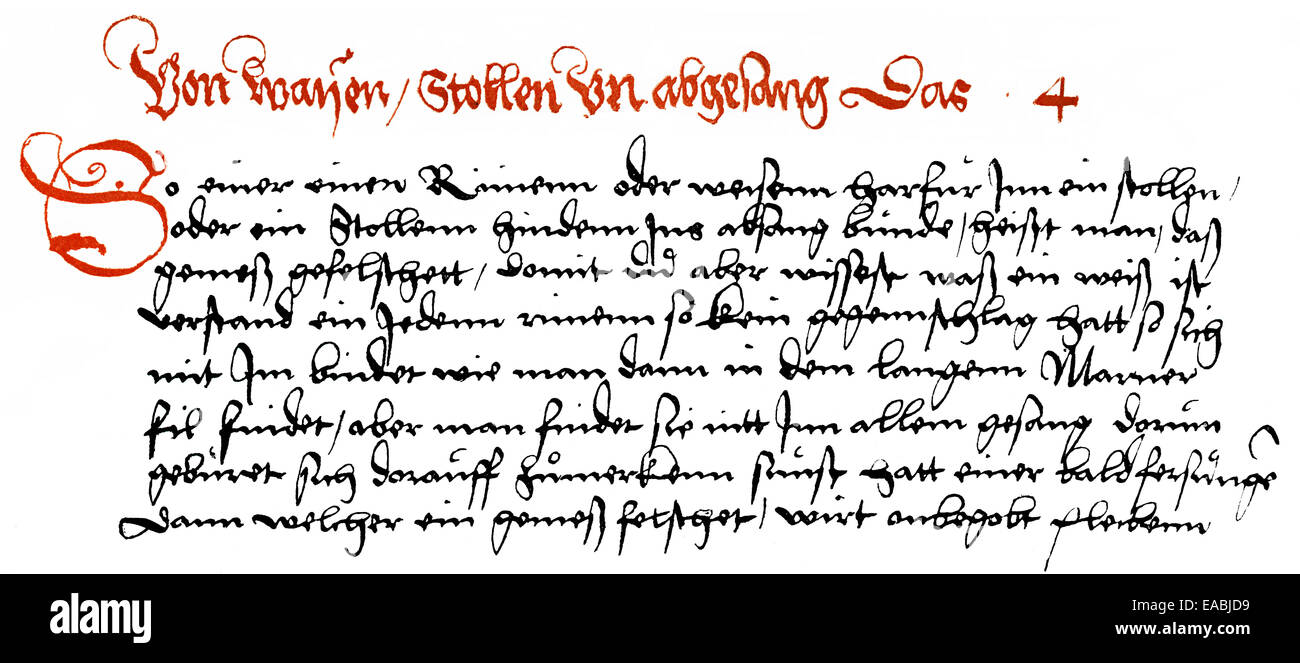 Von waysen / Stollen vn abgesang Das · 4
So einer einen Rimenn oder weisenn harfur Inn ein stollen /
oder ein Stollenn hindenn Ins absang bunde / heißt man / daß
gemeß gefelschett / domit du aber wissest waß ein weiß ist
verstand ein Jedenn rimenn so kein gegennschlag hatt so sich
mit Im bindet wie man dann in dem langenn Marner
fil findet / aber man findet sie nitt Inn allem gesang dorum
geburet sich dorauff zumerkenn sunst hatt einer bald fersunge
Dann welcher ein gemeß felschet / wirt onbegobt pleibenn
alamy
Image ID: EABJD9
www.alamy.com